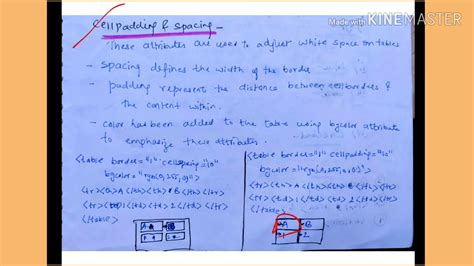 Made with KINEMASTER
Cellpadding & spacing -
These attributes are used to adjust white space on tables
- spacing defines the width of the border
- padding represent the distance between cellborders &
the content within.
- color has been added to the table using bgcolor attribute
to emphasize these attributes.
<table border="1" cellspacing="10"
bgcolor="rgb(0,255,0)">
<tr><th>A</th><th>B</th></tr>
<tr><td>1</td><td>2</td></tr>
</table>
A B
1 2
<table border="1" cellpadding="10"
bgcolor="rgb(0,255,0)">
<tr><th>A</th><th>B</th></tr>
<tr><td>1</td><td>2</td></tr>
</table>
A B
1 2